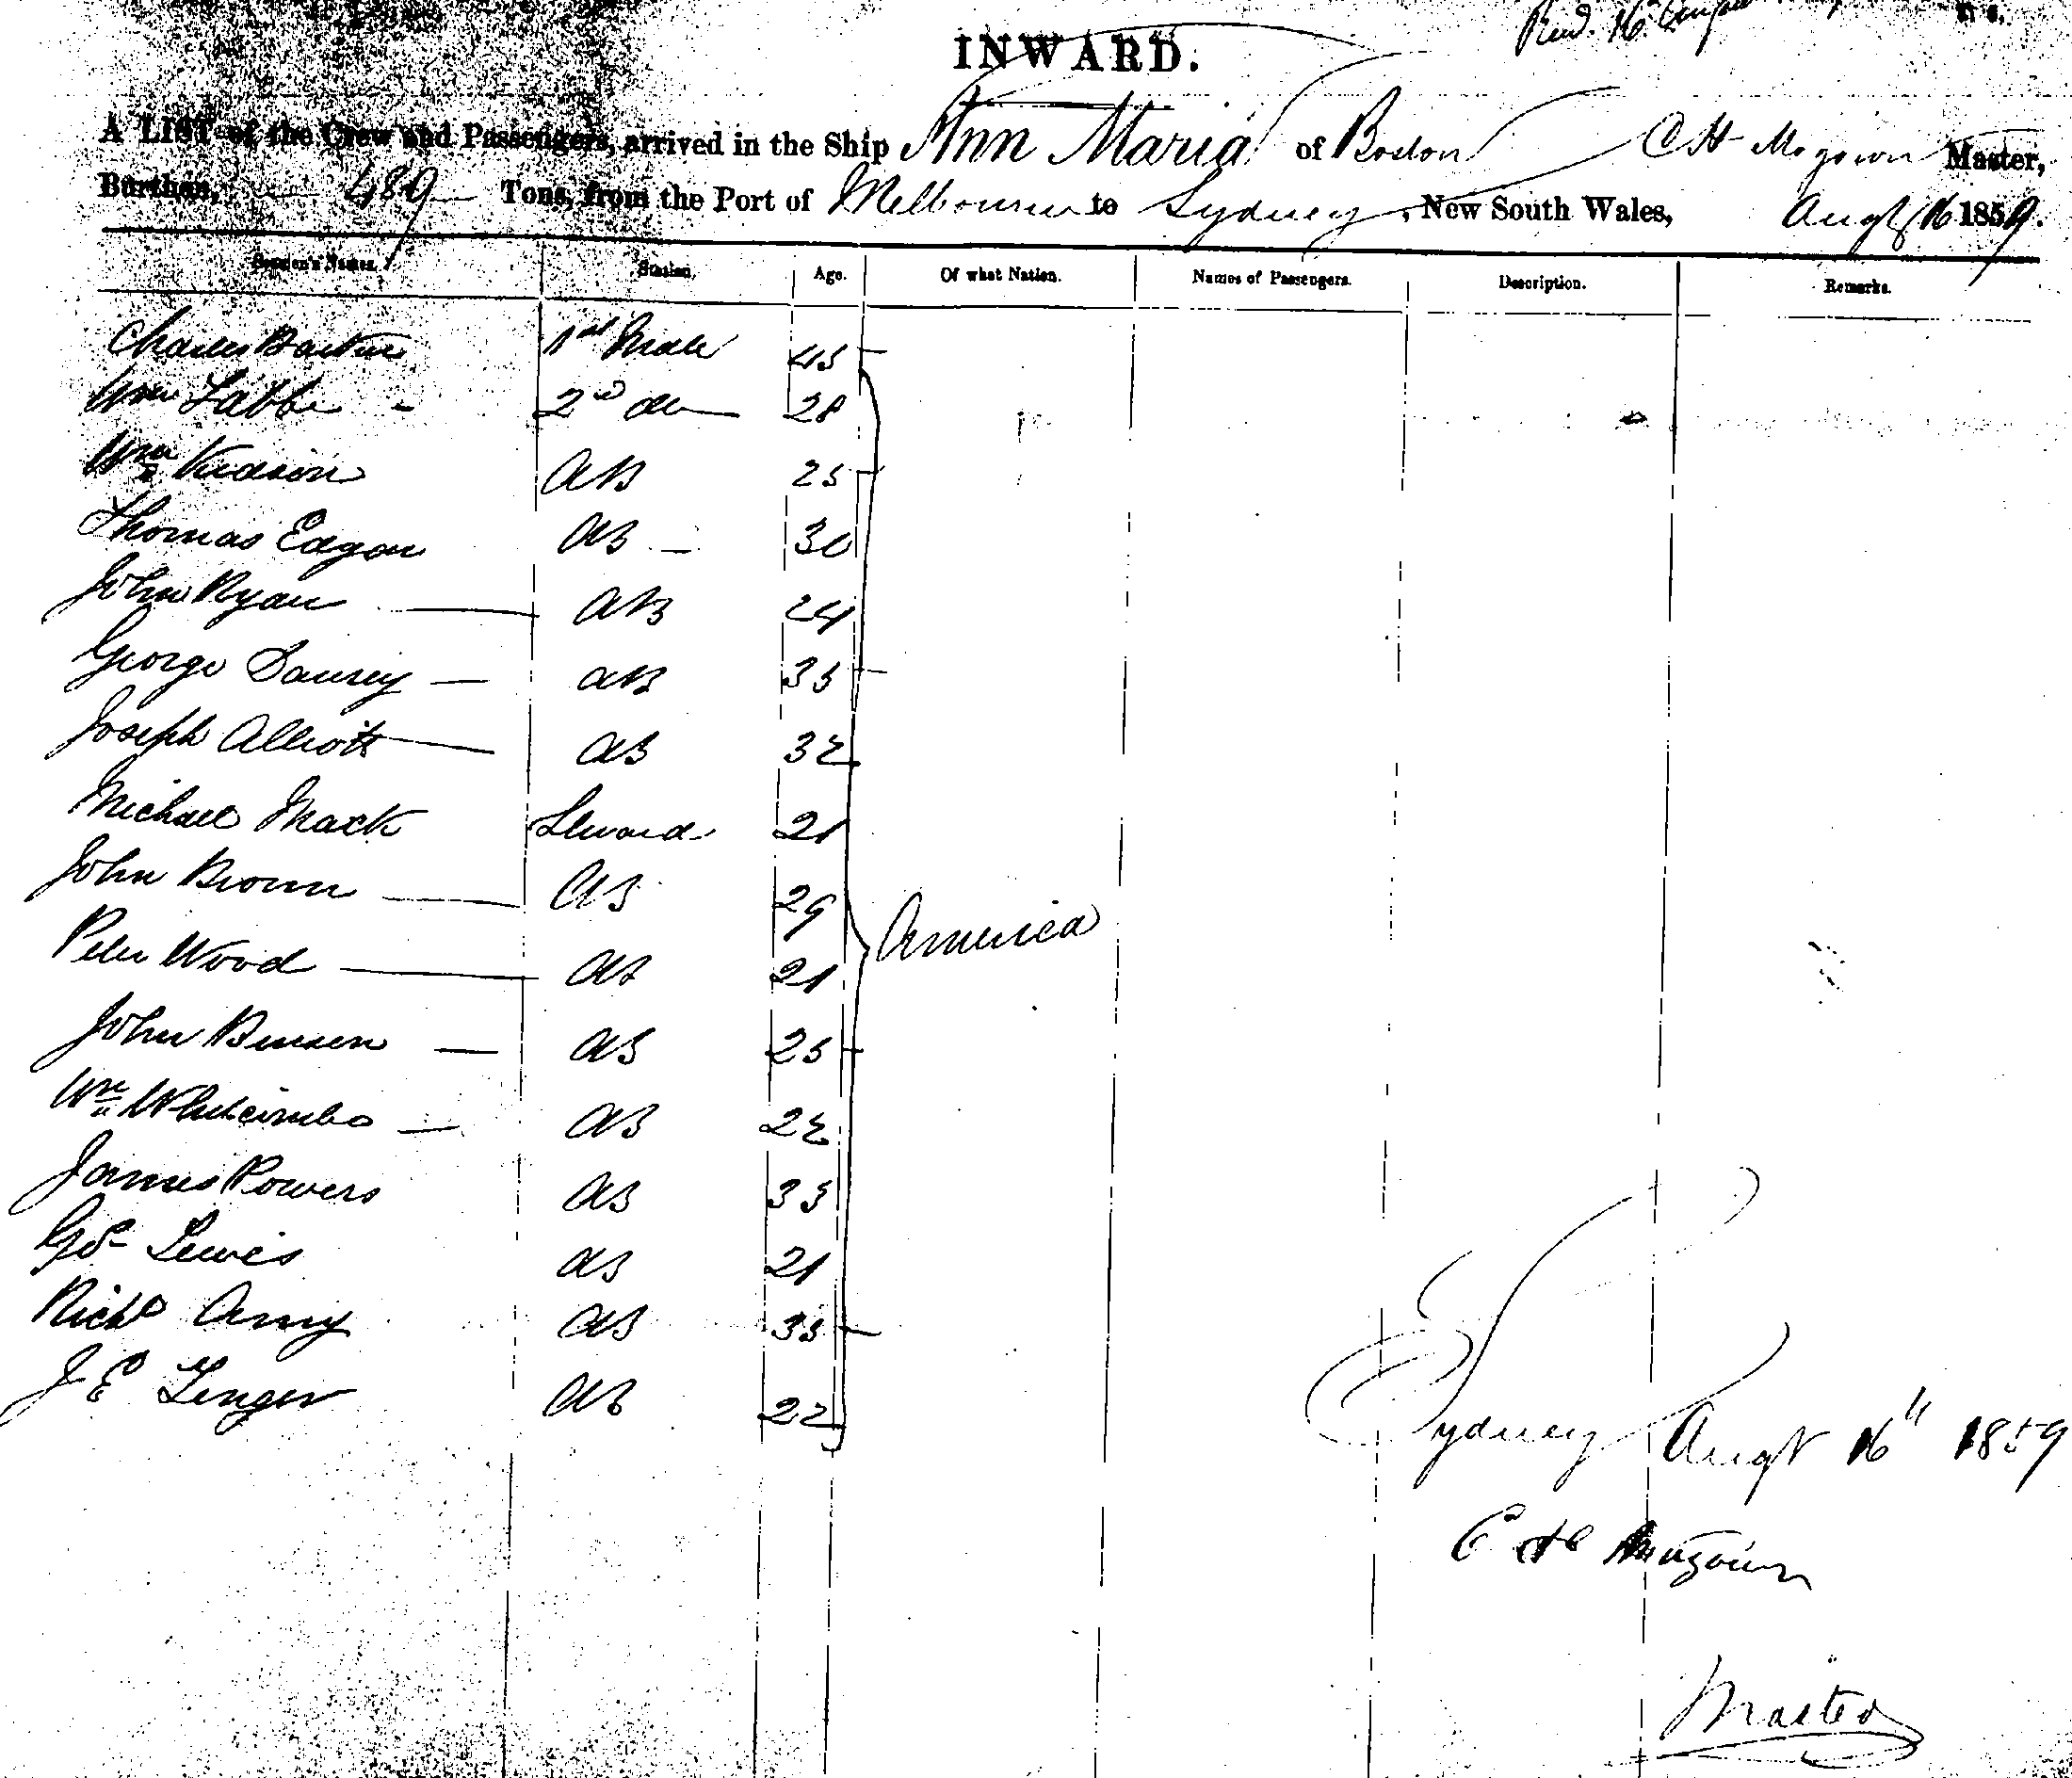 Recd. 16
INWARD.
A LIST of the Crew and Passengers, arrived in the Ship Ann Maria of Boston C H Magown Master,
Burthen, 489 Tons, from the Port of Melbourne to Sydney, New South Wales, Augt 16 1859.
Seamen's Names. Station. Age. Of what Nation. Names of Passengers. Description. Remarks.
Charles 1st Mate 45
Wm Labbe - 2nd do 28
Wm AB 25
Thomas Edgon AB 30
John Ryan AB 24
George AB 35
Joseph Alliott AB 32
Michael Mack Steward 21
John Brown AB 29
America
Peter Wood AB 21
John Bensen AB 25
Wm Whitcombe AB 22
James Powers AB 35
Geo Lewis AB 21
Richd Amy AB 35
J E Lenger AB 22
Sydney Augt 16th 1859
C H Magown
Master